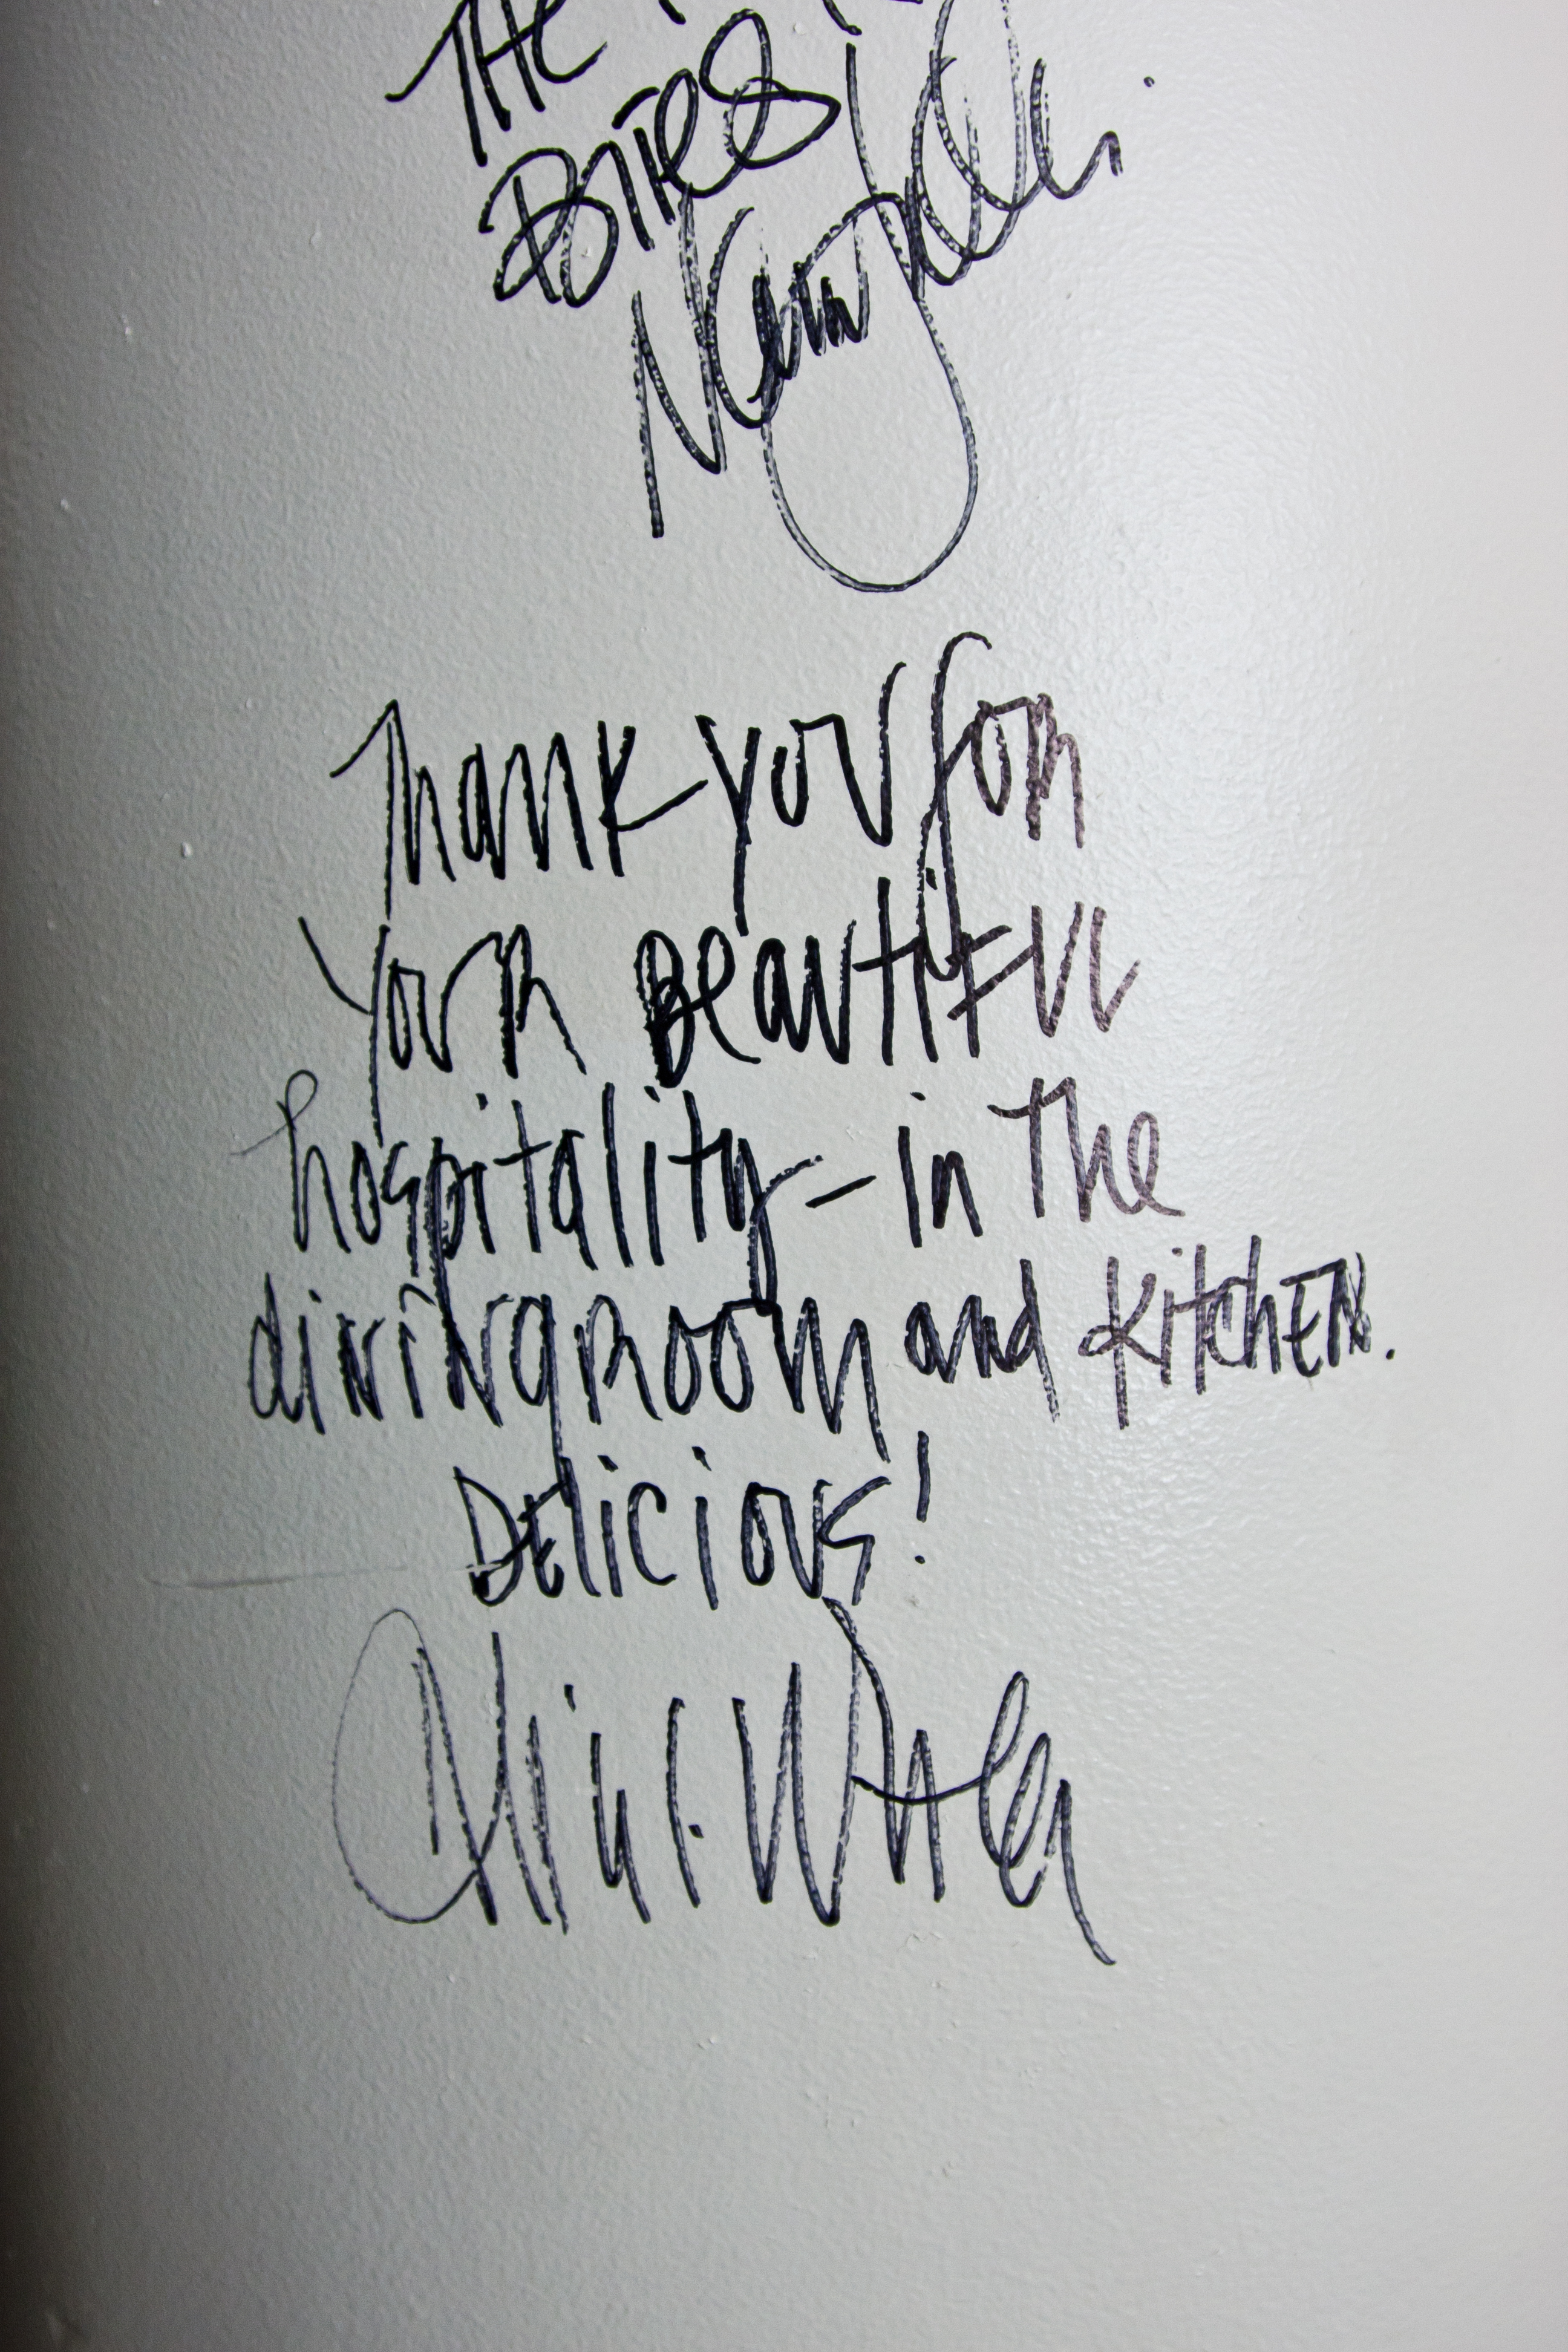 THE
Bites
Thank you for
your Beautiful
hospitality - in The
diningroom and kitchen.
Delicious!